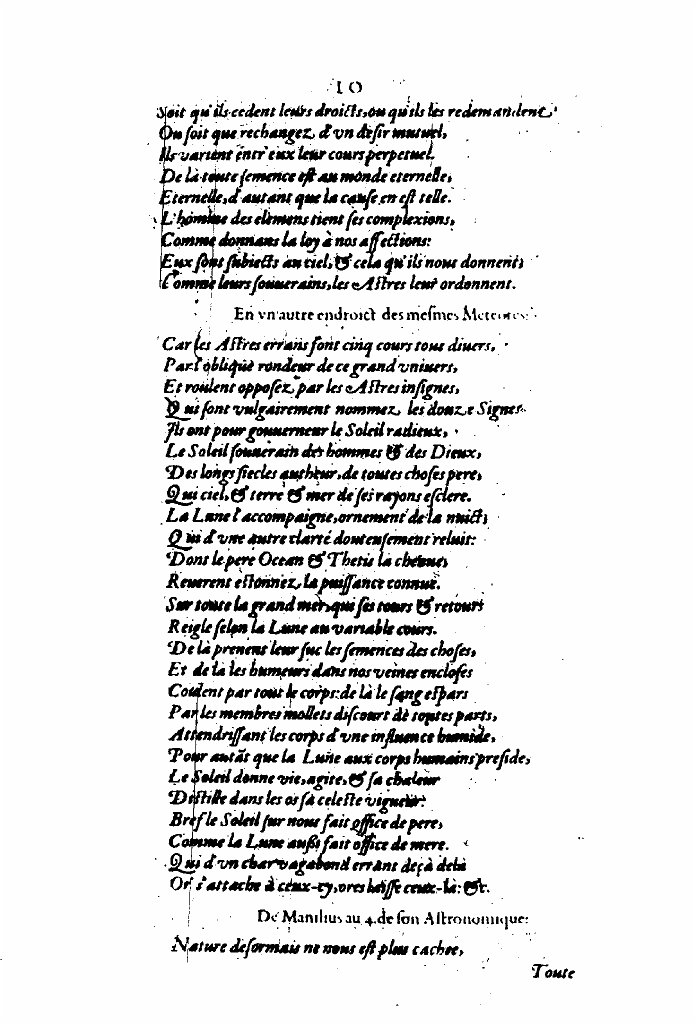 10
Soit qu'ils cedent leurs droicts, ou qu'ils les redemandent
Ou soit que rechangez d'vn desir mutuel,
Ils varient entr'eux leur cours perpetuel.
De là toute semence est au monde eternelle,
Eternelle, d'autant que la cause en est telle.
L'homme des elemens tient ses complexions,
Comme donnans la loy à nos affections:
Eux sont subiects au ciel, & cela qu'ils nous donnent,
Comme leurs souuerains, les Astres leur ordonnent.
En vn autre endroict des mesmes Meteores:
Car les Astres errans sont cinq cours tous diuers,
Par l'oblique rondeur de ce grand vniuers,
Et roulent opposez par les Astres insignes,
Qui sont vulgairement nommez les douze Signes.
Ils ont pour gouuerneur le Soleil radieux,
Le Soleil souuerain des hommes & des Dieux,
Des longs siecles autheur, de toutes choses pere,
Qui ciel, & terre & mer de ses rayons esclere.
La Lune l'accompaigne, ornement de la nuict,
Qui d'vne autre clarté douteusement reluit:
Dont le pere Ocean & Thetis la chenue,
Reuerent estonnez la puissance connue.
Sur toute la grand mer, qui ses tours & retours
Reigle selon la Lune au variable cours.
De là prenent leur suc les semences des choses,
Et de là les humeurs dans nos veines encloses
Coulent par tout le corps: de là le sang espars
Par les membres mollets discourt de toutes parts,
Attendrissant les corps d'vne influence humide,
Pour autãt que la Lune aux corps humains preside,
Le Soleil donne vie, agite, & sa chaleur
Distille dans les os sa celeste vigueur:
Bref le Soleil sur nous fait office de pere,
Comme la Lune aussi fait office de mere.
Qui d'vn char vagabond errant deçà delà
Or' s'attache à ceux-cy, ores laisse ceux-là: &c.
De Manilius au 4. de son Astronomique:
Nature desormais ne nous est plus cachee,
Toute